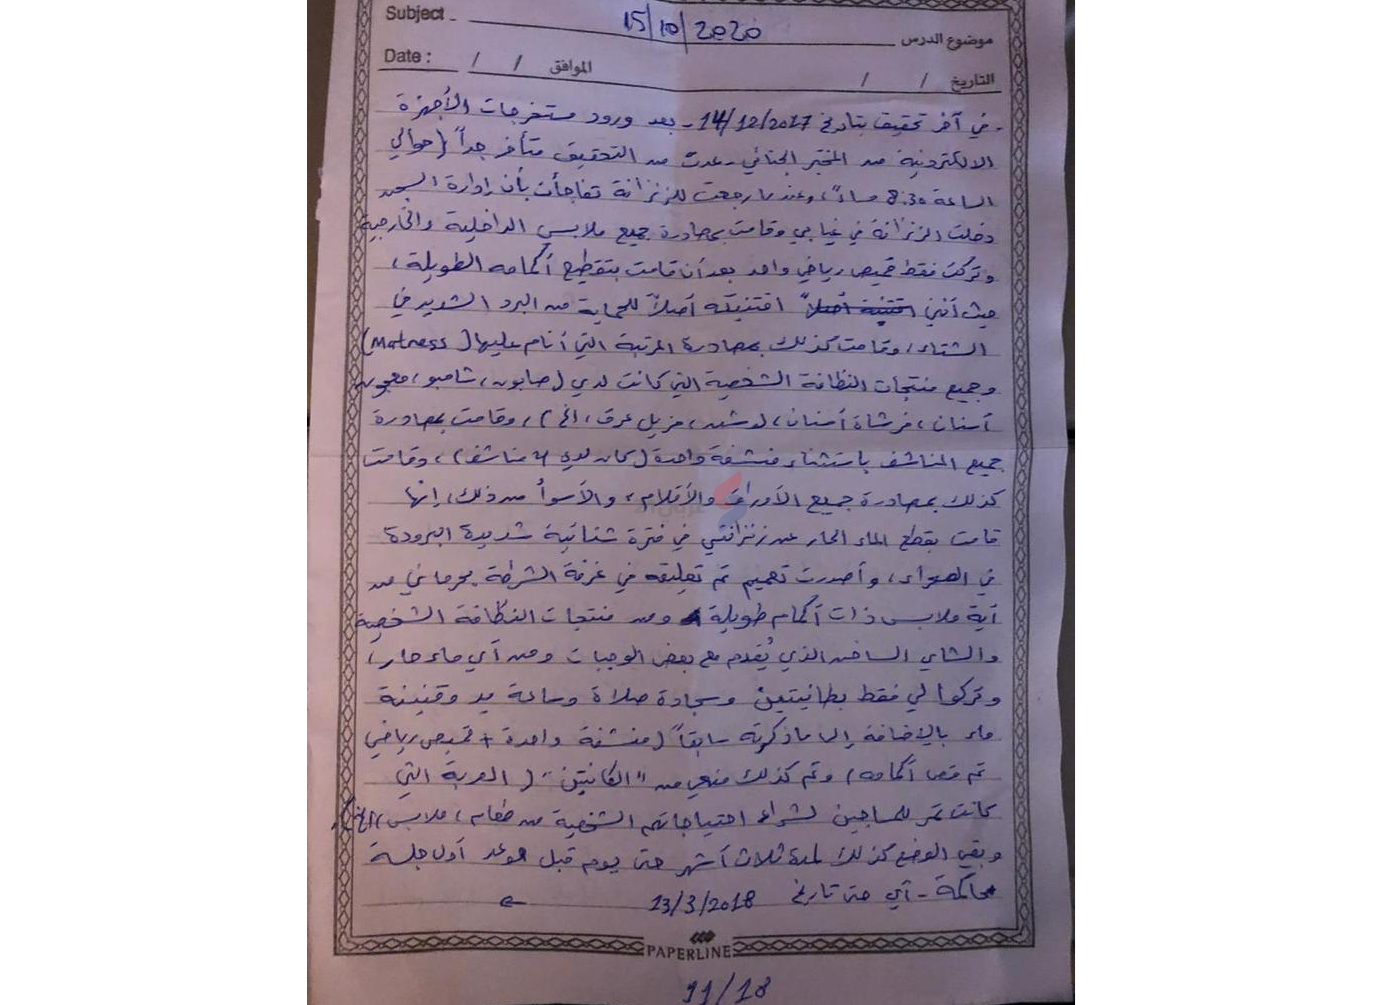 Subject_ 15/10/2020 موضوع الدرس
Date : / / الموافق / / التاريخ
- في آخر تحقيق بتاريخ 14/12/2017 - بعد ورود مستخرجات الأجهزة
الالكترونية من المختبر الجنائي - عدت من التحقيق متأخر جداً (حوالي
الساعة 8:30 مساءً)، وعندما رجعت للزنزانة تفاجأت بأن إدارة السجن
دخلت الزنزانة في غيابي وقامت بمصادرة جميع ملابسي الداخلية والخارجية
وتركت فقط قميص رياضي واحد بعد أن قامت بتقطيع أكمامه الطويلة،
حيث أنني اقتنيته أصلاً اقتنيته أصلاً للحماية من البرد الشديد في
الشتاء، وقامت كذلك بمصادرة المرتبة التي أنام عليها (Matress)
وجميع منتجات النظافة الشخصية التي كانت لدي (صابون، شامبو، معجون
أسنان، فرشاة أسنان، لوشن، مزيل عرق، الخ)، وقامت بمصادرة
جميع المناشف باستثناء منشفة واحدة (كان لدي 4 مناشف)، وقامت
كذلك بمصادرة جميع الأوراق والأقلام، والأسوأ من ذلك، إنها
قامت بقطع الماء الحار عن زنزانتي في فترة شتائية شديدة البرودة
في الهواء، وأصدرت تعميم تم تعليقه في غرفة الشرطة بحرماني من
أية ملابس ذات أكمام طويلة ومن منتجات النظافة الشخصية
والشاي الساخن الذي يُقدم مع بعض الوجبات ومن أي ماء حار،
وتركوا لي فقط بطانيتين وسجادة صلاة وساعة يد وقنينة
ماء بالإضافة إلى ما ذكرته سابقاً (منشفة واحدة + قميص رياضي
تم قص أكمامه) وتم كذلك منعي من "الكانتين" (العربة التي
كانت تمر للمساجين لشراء احتياجاتهم الشخصية من طعام، ملابس، الخ).
وبقي الوضع كذلك لمدة ثلاث أشهر حتى يوم قبل موعد أول جلسة
محاكمة - أي حتى تاريخ 13/3/2018
PAPERLINE
11/18